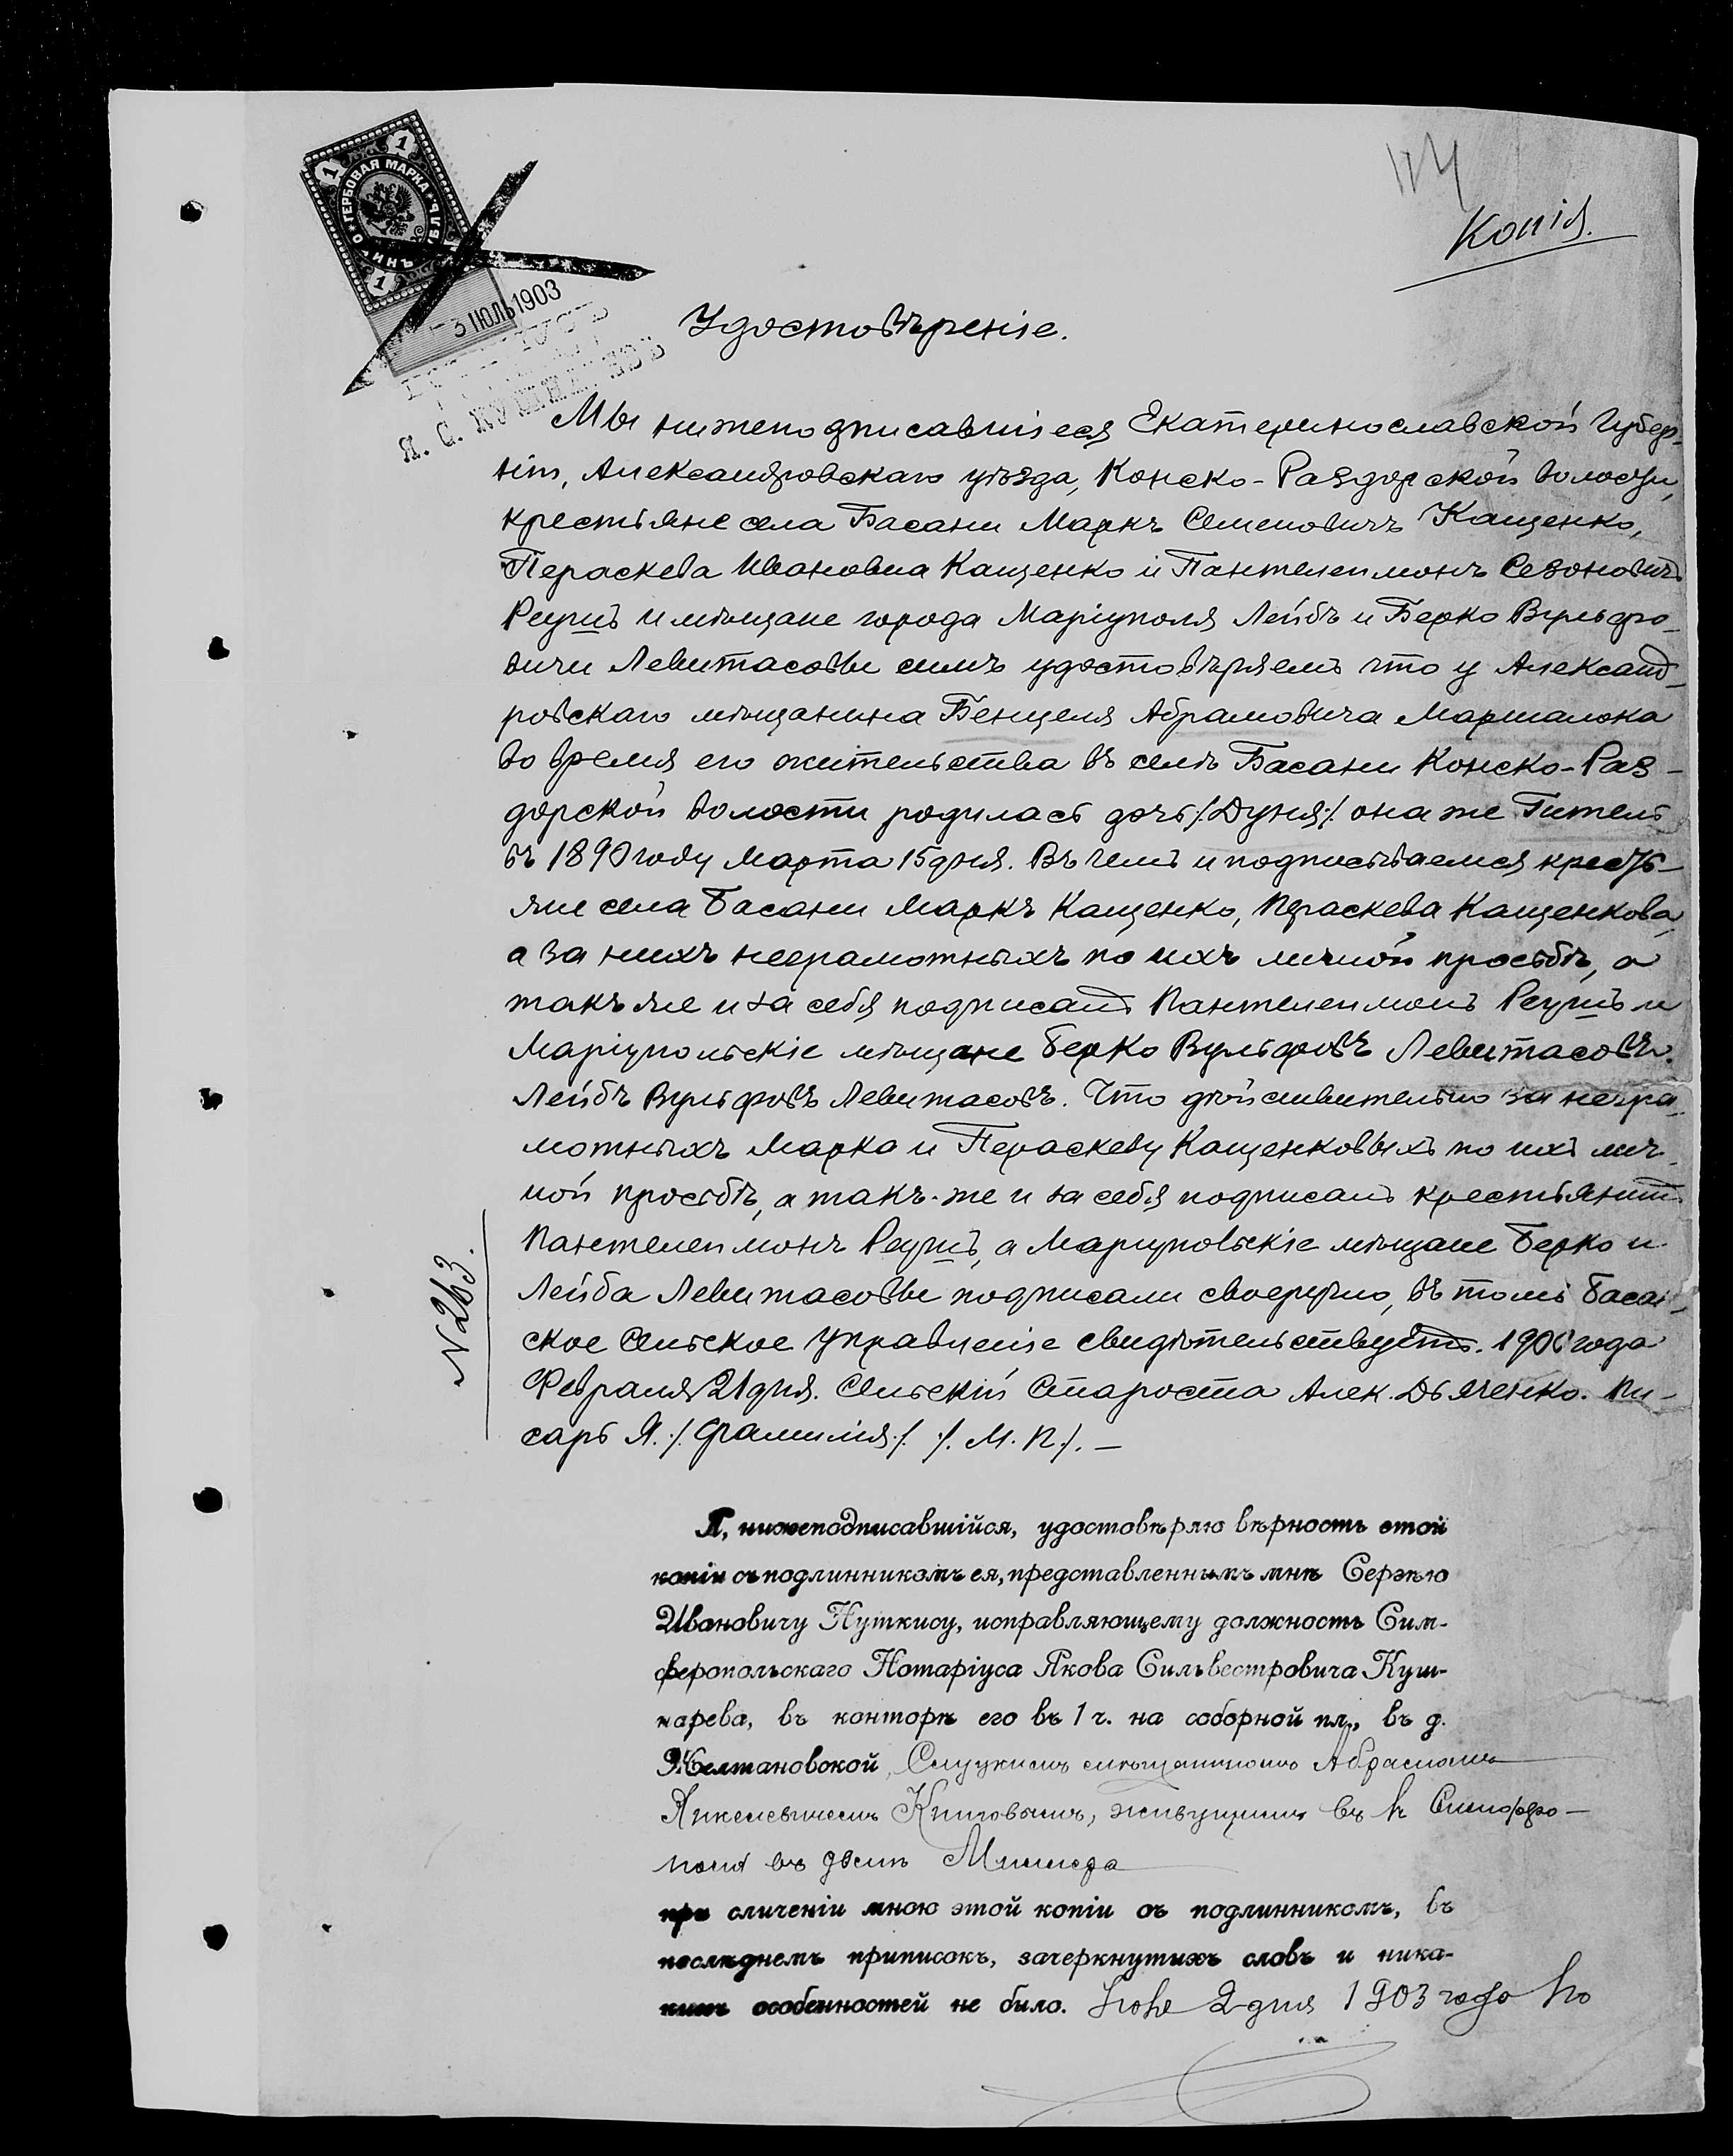 114
Копія.
ГЕРБОВАЯ МАРКА
1 1 1
- 3 ІЮЛЬ 1903
Я. С. КУШНАРЕВЪ
Удостовѣреніе.
Мы нижеподписавшіеся Екатеринославской Губер-
ніи, Александровскаго уѣзда, Конско-Раздорской волости,
крестьяне села Басани Маркъ Семеновичъ Кащенко,
Пераскева Ивановна Кащенко и Пантелеймонъ Сезоновичъ
Реушъ и мѣщане города Маріуполя Лейбъ и Берко Вульфо-
вичи Левитасовы симъ удостовѣряемъ что у Александ-
ровскаго мѣщанина Бенцеля Абрамовича Маршалока
во время его жительства въ селѣ Басани Конско-Раз-
дорской волости родилась дочь /:Дуня:/ она же Гитель
въ 1890 году Марта 15 дня. Въ чемъ и подписываемся кресть-
яне села Басани Маркъ Кащенко, Пераскева Кащенкова,
а за нихъ неграмотныхъ по ихъ личной просьбѣ, а
такъ же и за себя подписалъ Пантелеймонъ Реушъ и
Маріупольскіе мѣщане Берко Вульфовъ Левитасовъ.
Лейбъ Вульфовъ Левитасовъ. Что дѣйсивительно за негра-
мотныхъ Марка и Пераскеву Кащенковыхъ по ихъ лич-
ной просьбѣ, а такъ-же и за себя подписалъ крестьянинъ
Пантелеймонъ Реушъ, а Маріупольскіе мѣщане Берко и
Лейба Левитасовы подписали своеручно, въ томъ Басан-
ское Сельское Управленіе свидѣтельствуетъ. 1900 года
Февраля 21 дня. Сельскій Староста Алек. Дьяченко. Пи-
сарь Я. /:Фамилія:/ /:М. П:/. —
N 263.
Я, нижеподписавшійся, удостовѣряю вѣрность этой
копіи съ подлинникомъ ея, представленнымъ мнѣ Сергѣю
Ивановичу Нуткису, исправляющему должность Сим-
феропольскаго Нотаріуса Якова Сильвестровича Куш-
нарева, въ конторѣ его въ 1 ч. на соборной пл., въ д.
Желтановской, Слуцкимъ мѣщаниномъ Абрамомъ
Янкелевичемъ живущимъ въ г. Симферо-
полѣ въ домѣ
при сличеніи мною этой копіи съ подлинникомъ, въ
послѣднемъ приписокъ, зачеркнутыхъ словъ и ника-
кихъ особенностей не было. 2 дня 1903 года По